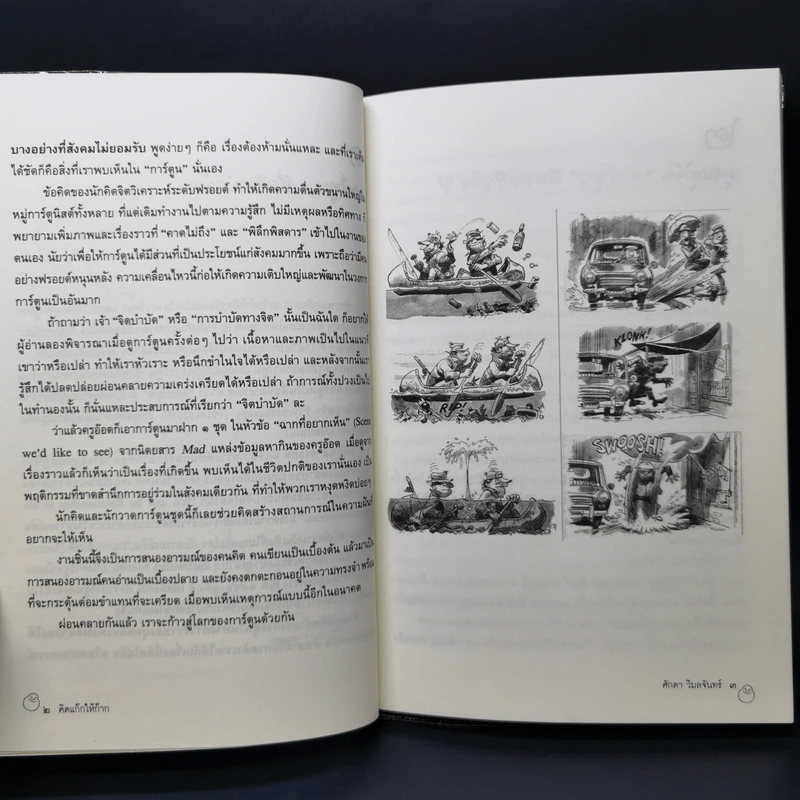 บางอย่างที่สังคมไม่ยอมรับ พูดง่ายๆ ก็คือ เรื่องต้องห้ามนั่นแหละ และที่เราเห็น
ได้ชัดก็คือสิ่งที่เราพบเห็นใน “การ์ตูน” นั่นเอง
ข้อคิดของนักคิดจิตวิเคราะห์ระดับฟรอยด์ ทำให้เกิดความตื่นตัวขนานใหญ่ใน
หมู่การ์ตูนิสต์ทั้งหลาย ที่แต่เดิมทำงานไปตามความรู้สึก ไม่มีเหตุผลหรือทิศทาง
พยายามเพิ่มภาพและเรื่องราวที่ “คาดไม่ถึง” และ “พิลึกพิสดาร” เข้าไปในงานของ
ตนเอง นัยว่าเพื่อให้การ์ตูนได้มีส่วนที่เป็นประโยชน์แก่สังคมมากขึ้น เพราะถือว่ามีคน
อย่างฟรอยด์หนุนหลัง ความเคลื่อนไหวนี้ก่อให้เกิดความเติบใหญ่และพัฒนาในวงการ
การ์ตูนเป็นอันมาก
ถ้าถามว่า เจ้า “จิตบำบัด” หรือ “การบำบัดทางจิต” นั้นเป็นฉันใด ก็อยากให้
ผู้อ่านลองพิจารณาเมื่อดูการ์ตูนครั้งต่อๆ ไปว่า เนื้อหาและภาพเป็นไปในแนวที่
เขาว่าหรือเปล่า ทำให้เราหัวเราะ หรือนึกขำในใจได้หรือเปล่า และหลังจากนั้นเรา
รู้สึกได้ปลดปล่อยผ่อนคลายความเคร่งเครียดได้หรือเปล่า ถ้าการณ์ทั้งปวงเป็นไป
ในทำนองนั้น ก็นั่นแหละประสบการณ์ที่เรียกว่า “จิตบำบัด” ละ
ว่าแล้วครูอ๊อดก็เอาการ์ตูนมาฝาก ๑ ชุด ในหัวข้อ “ฉากที่อยากเห็น” (Scene
we'd like to see) จากนิตยสาร Mad แหล่งข้อมูลหากินของครูอ๊อด เมื่อดูจาก
เรื่องราวแล้วก็เห็นว่าเป็นเรื่องที่เกิดขึ้น พบเห็นได้ในชีวิตปกติของเรานั่นเอง เป็น
พฤติกรรมที่ขาดสำนึกการอยู่ร่วมในสังคมเดียวกัน ที่ทำให้พวกเราหงุดหงิดบ่อยๆ
นักคิดและนักวาดการ์ตูนชุดนี้ก็เลยช่วยคิดสร้างสถานการณ์ในความฝันที่
อยากจะให้เห็น
งานชิ้นนี้จึงเป็นการสนองอารมณ์ของคนคิด คนเขียนเป็นเบื้องต้น แล้วมาเป็น
การสนองอารมณ์คนอ่านเป็นเบื้องปลาย และยังคงตกตะกอนอยู่ในความทรงจำ พร้อม
ที่จะกระตุ้นต่อมขำแทนที่จะเครียด เมื่อพบเห็นเหตุการณ์แบบนี้อีกในอนาคต
ผ่อนคลายกันแล้ว เราจะก้าวสู่โลกของการ์ตูนด้วยกัน
๒ คิดแก๊กให้ก๊าก
RIP!
KLONK!
SWOOSH!
ศักดา วิมลจันทร์ ๓